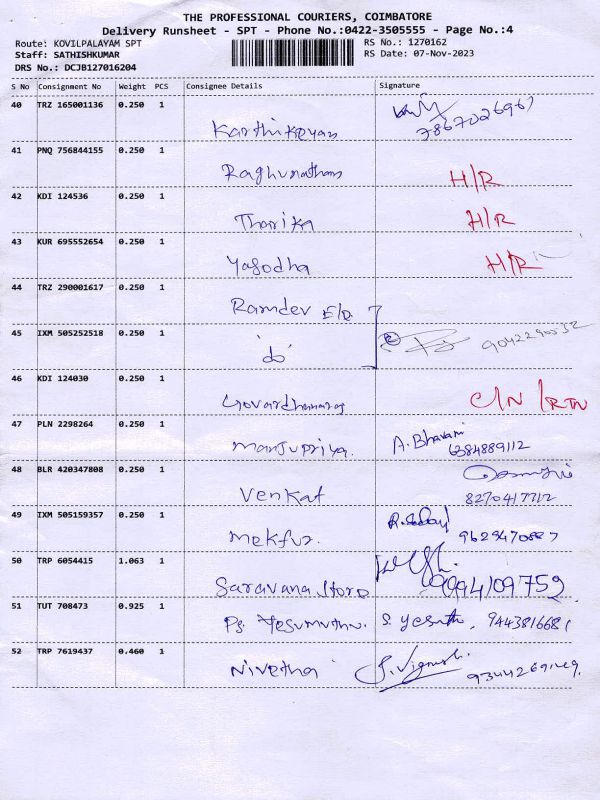 THE PROFESSIONAL COURIERS, COIMBATORE
Delivery Runsheet - SPT - Phone No.:0422-3505555 - Page No.:4
Route: KOVILPALAYAM SPT RS No.: 1270162
Staff: SATHISHKUMAR RS Date: 07-Nov-2023
DRS No.: DCJB127016204
S No Consignment No Weight PCS Consignee Details Signature
40 TRZ 165001136 0.250 1
Karthikeyan
41 PNQ 756844155 0.250 1
Raghunathan H/R
42 KDI 124536 0.250 1
Tharika H/R
43 KUR 695552654 0.250 1
Yasodha H/R
44 TRZ 290001617 0.250 1
Ramdev E/D.
45 IXM 505252518 0.250 1
"do"
46 KDI 124030 0.250 1
Govardhanaraj C/N /RTN
47 PLN 2298264 0.250 1
Manjupriya. A. Bhavani
6384889112
48 BLR 420347808 0.250 1
Venkat
49 IXM 505159357 0.250 1
Mekfuz.
50 TRP 6054415 1.063 1
Saravana Store 9994109752
51 TUT 708473 0.925 1
Ps. Yesumuthu. S. Yesuth, 9443816681
52 TRP 7619437 0.460 1
Nivetha S. Vignesh.